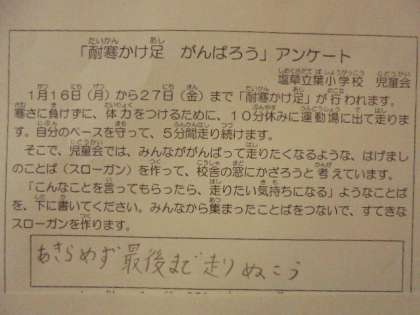 「耐寒かけ足　がんばろう」アンケート
塩草立葉小学校　児童会
1月16日（月）から27日（金）まで「耐寒かけ足」が行われます。
寒さに負けずに、体力をつけるために、10分休みに運動場に出て走りま
す。自分のペースを守って、5分間走り続けます。
そこで、児童会では、みんながんばって走りたくなるような、はげまし
のことば（スローガン）を作って、校舎の窓にかざろうと考えています。
「こんなことを言ってもらったら、走りたい気持ちになる」ようなことば
を、下に書いてください。みんなから集まったことばをつないで、すてきな
スローガンを作ります。
あきらめず最後まで走りぬこう